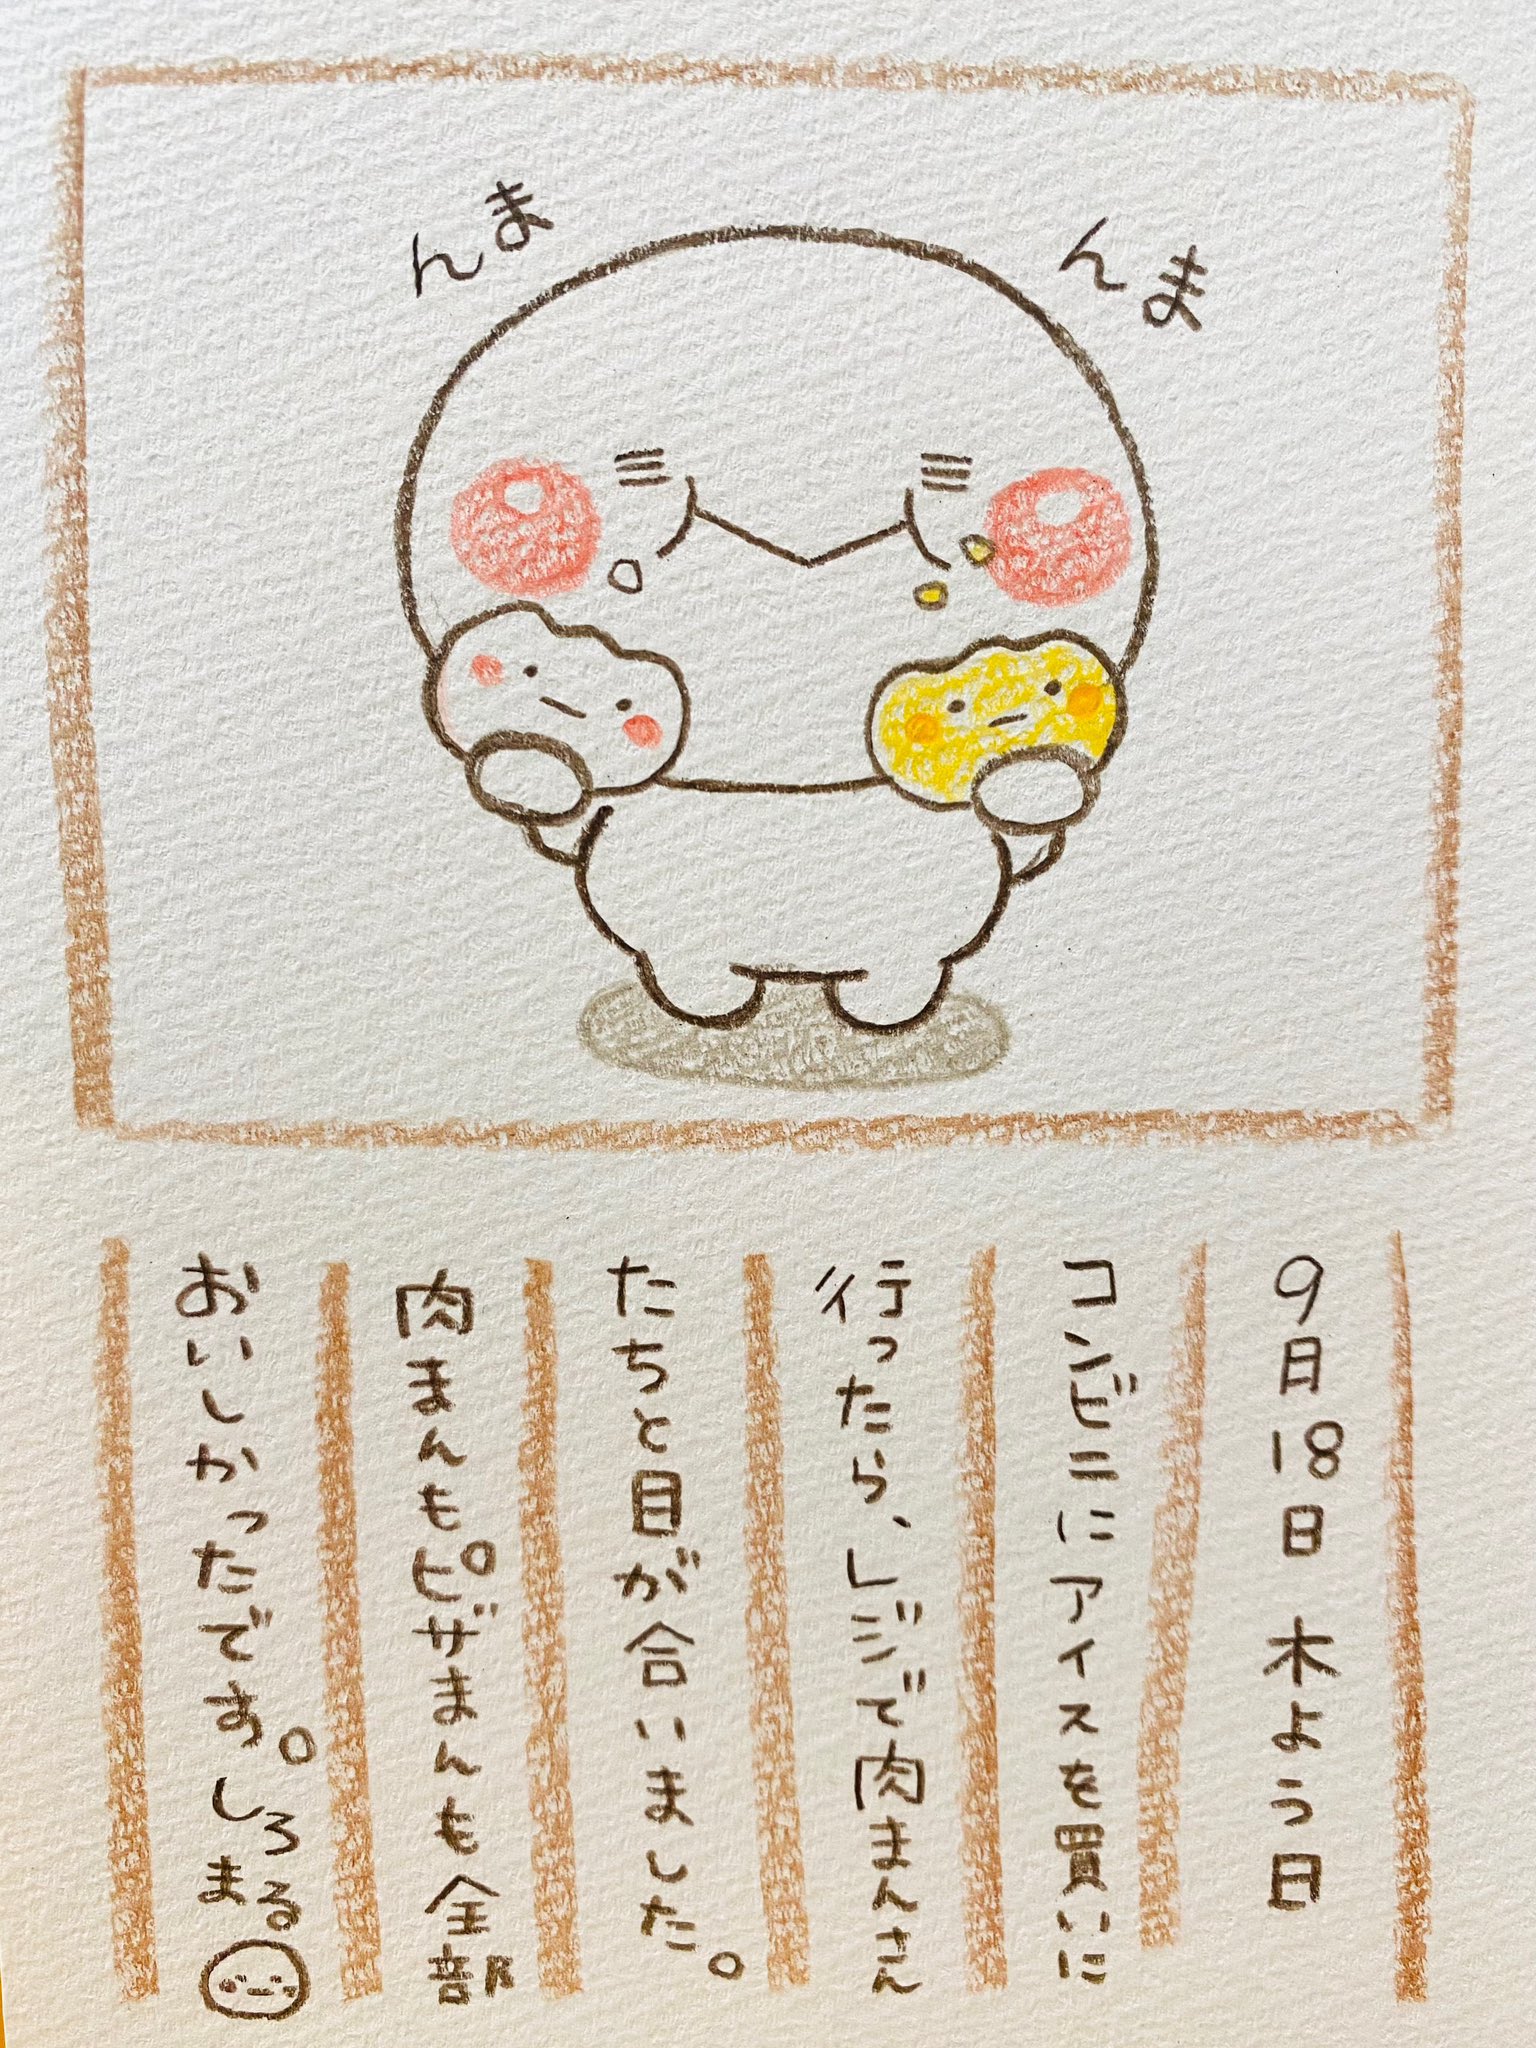 んま
んま
9月18日 木よう日
コンビニにアイスを買いに
行ったら、レジで肉まんさん
たちと目が合いました。
肉まんもピザまんも全部
おいしかったです。しろまる